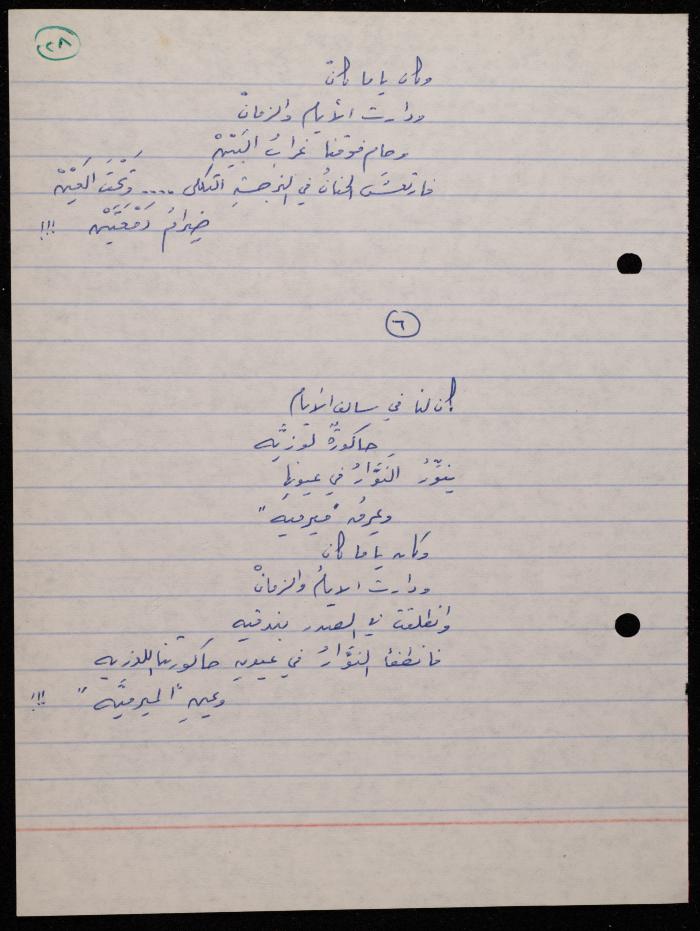 ٢٨
وكان يا ما كانْ
ودارت الأيام والزمانْ
وحام فوقنا غرابُ البَيْنْ
فارتعشَ الحنانُ في النرجسةِ الثكلى .... وتَحْتَ العَيْنْ
ضِرامُ دَمْعَتَيْنْ !!!
٦
كان لنا في سالف الأيام
حاكورةٌ لوزيَّه
ينوّرُ النوَّارُ في عيونِها
وعِرقُ "ميرميه"
وكان يا ما كان
ودارت الايامُ والزمانْ
وانطلقت في الصدر بندقيه
فانطفأ النوَّارُ في عيونِ حاكورتِنا اللوزيه
وعينِ "الميرميَّه" !!!